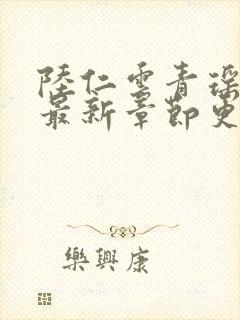 陸仁雲青瑤
最新章節更
樂興康